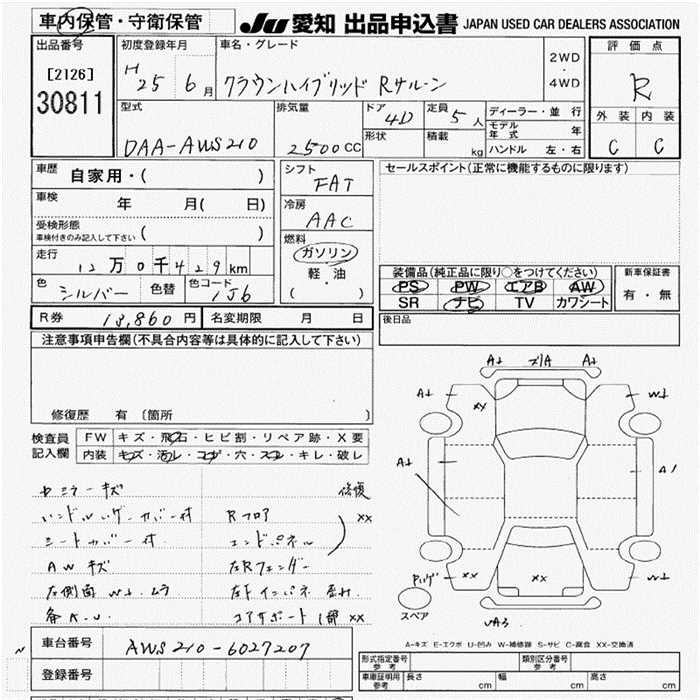 車内保管・守衛保管 JU 愛知 出品申込書 JAPAN USED CAR DEALERS ASSOCIATION
出品番号 初度登録年月 車名・グレード 2WD・4WD 評価点
[2126] 30811 H 25 6月 クラウンハイブリッド Rサルーン R
型式 排気量 ドア 4D 定員 5人 ディーラー・並行 外装 内装
DAA-AWS210 2500CC 形状 積載 kg モデル年式 年 C C
ハンドル 左・右
車歴 自家用・( ) シフト FAT セールスポイント(正常に機能するものに限ります)
車検 年 月( 日) 冷房 AAC
受検形態 車検付きのみ記入して下さい ( )
燃料 ガソリン 軽油 ( ・ )
走行 12万0千429km
色 シルバー 色替 色コード 1J6
装備品(純正品に限り○をつけてください) 新車保証書
PS PW エアB AW 有・無
SR ナビ TV カワシート
R券 13,860円 名変期限 月 日 後日品
注意事項申告欄(不具合内容等は具体的に記入して下さい)
修復歴 有 〔箇所 〕
検査員記入欄 FW キズ・飛石・ヒビ割・リペア跡・X要
内装 キズ・汚レ・コゲ・穴・スレ・キレ・破レ
セミラーキズ 修復
ハンドルハゲーカバー付 Rフロア XX
シートカバー付 エンドパネル
AWキズ 左Rフェンダー
左側面 W1.ムラ
コアサポート1部XX
A1 A1
A1 XX W1
A1 A1
XX XX W1
スペア
A-キズ E-エクボ U-凹み W-補修跡 S-サビ C-腐食 XX-交換済
車台番号 AWS210-6027207
登録番号
形式指定番号 参考 類別区分番号 参考
車庫証明用 参考 長さ cm 幅 cm 高さ cm